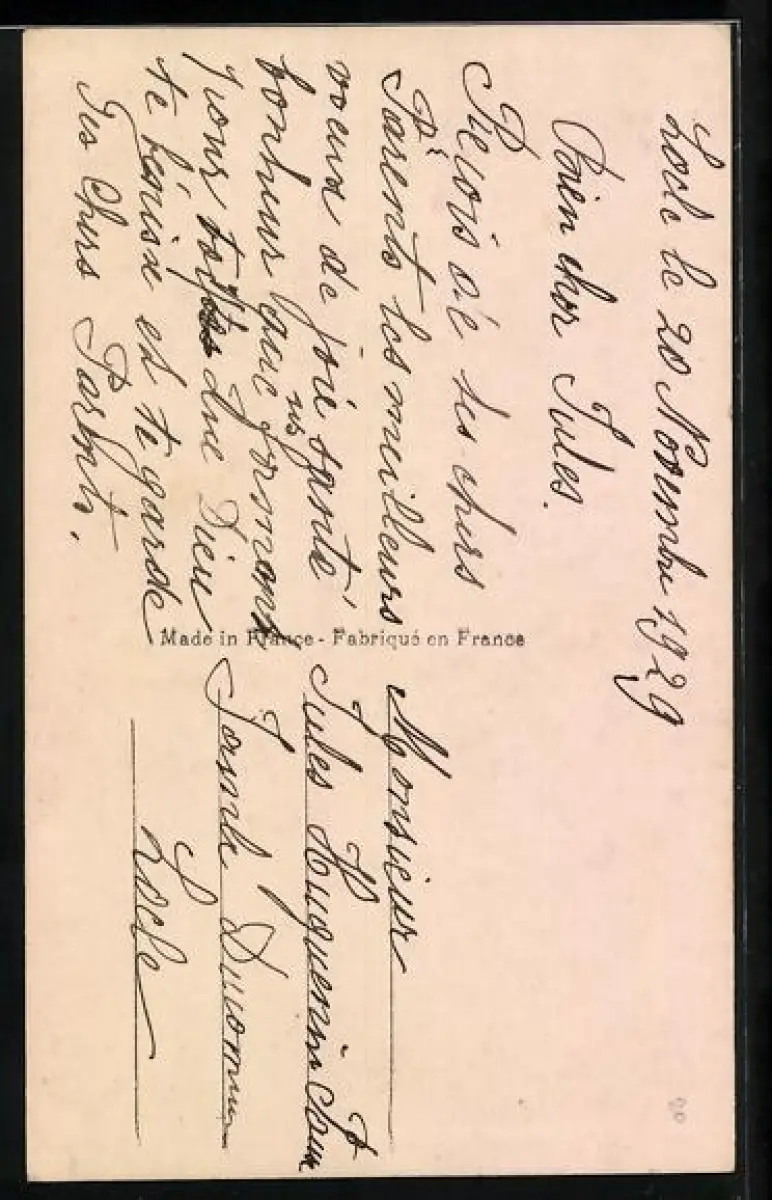 Locle le 20 Novembre 1929
Bien cher Jules.
Reçois de tes chers
Parents les meilleurs
voeux de joie santé
bonheur que nous formont
pour toi que Dieu
te bénisse et te garde
Tes Chers Parents.
Made in France - Fabriqué en France
Monsieur
Jules Huguenin
Ducommun
Locle
90